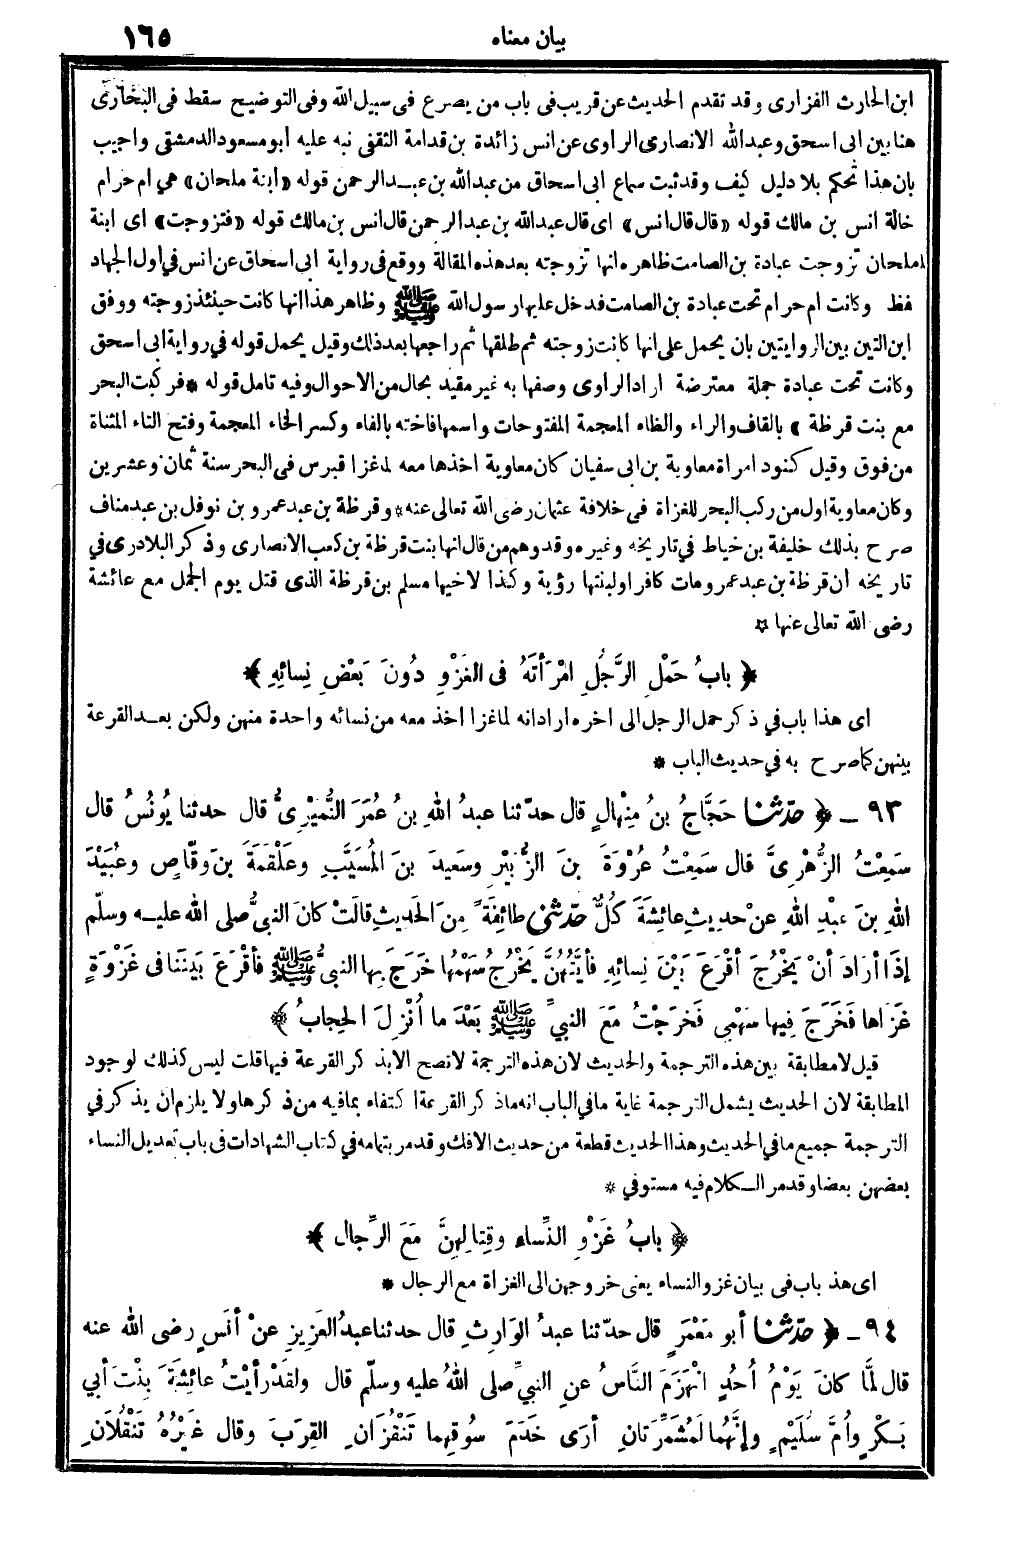 بيان معناه ١٦٥
ابن الحارث الفزارى وقد تقدم الحديث عن قريب فى باب من يصرع فى سبيل الله وفى التوضيح سقط فى البخارى
هنا بين ابى اسحق وعبدالله الانصارى الراوى عن انس زائدة بن قدامة الثقفى نبه عليه أبو مسعود الدمشقى واجيب
بان هذا تحكم بلا دليل كيف وقد ثبت سماع ابى اسحاق من عبدالله بن عبد الرحمن قوله «ابنة ملحان» هي ام حرام
خالة انس بن مالك قوله «قال قال انس» اى قال عبدالله بن عبد الرحمن قال انس بن مالك قوله «فتزوجت» اى ابنة
ملحان تزوجت عبادة بن الصامت ظاهره انها تزوجته بعد هذه المقالة ووقع فى رواية ابى اسحاق عن انس في أول الجهاد
فظ وكانت ام حرام تحت عبادة بن الصامت فدخل عليها رسول الله ﷺ وظاهر هذا انها كانت حينئذ زوجته ووفق
ابن التين بين الروايتين بان يحمل على انها كانت زوجته ثم طلقها ثم راجعها بعد ذلك وقيل يحمل قوله في رواية ابى اسحق
وكانت تحت عبادة جملة معترضة اراد الراوى وصفها به غير مقيد بحال من الاحوال وفيه تامل قوله * فركبت البحر
مع بنت قرظة » بالقاف والراء والظاء المعجمة المفتوحات واسمها فاخته بالفاء وكسر الخاء المعجمة وفتح التاء المثناة
من فوق وقيل كنود امرأة معاوية بن ابى سفيان كان معاوية اخذها معه لما غزا قبرس فى البحر سنة ثمان وعشرين
وكان معاوية اول من ركب البحر للغزاة فى خلافة عثمان رضى الله تعالى عنه * وقرظة بن عبد عمرو بن نوفل بن عبد مناف
صرح بذلك خليفة بن خياط في تاريخه وغيره وقد وهم من قال انها بنت قرظة بن كعب الانصارى وذكر البلاذرى في
تاريخه أن قرظة بن عبد عمرو مات كافرا ولبنتها رؤية وكذا لاخيها مسلم بن قرظة الذى قتل يوم الجمل مع عائشة
رضى الله تعالى عنها *
﴿ بابُ حَمْلِ الرَّجُلِ امْرَأتَهُ فى الغَزْوِ دُونَ بَعْضِ نِسائِهِ ﴾
اى هذا باب في ذكر حمل الرجل الى اخره ارادانه لما غزا اخذ معه من نسائه واحدة منهن ولكن بعد القرعة
بينهن كما صرح به في حديث الباب *
٩٣ - ﴿ حدّثنا حَجَّاجُ بنُ مِنْهالٍ قال حدّثنا عبدُ اللهِ بنُ عُمَرَ النُّمَيْرِىُّ قال حدثنا يُونُسُ قال
سَمِعْتُ الزُّهْرِىَّ قال سَمِعْتُ عُرْوَةَ بنَ الزُّبَيْرِ وسَعِيدَ بنَ المُسَيَّبِ وعَلْقَمَةَ بنَ وقَّاصٍ وعُبَيْدَ
اللهِ بنَ عبْدِ اللهِ عنْ حديثِ عائِشَةَ كُلٌّ حدّثنى طائِفَةً مِنَ الحَدِيثِ قالَتْ كانَ النبىُّ صلى الله عليه وسلّم
إذَا أرَادَ أنْ يَخْرُجَ أقْرَعَ بَيْنَ نِسائِهِ فأيَّتُهُنَّ يَخْرُجُ سَهْمُها خَرَجَ بِها النبىُّ ﷺ فأقْرَعَ بَيْنَنا فى غَزْوَةٍ
غَزَاها فَخَرَجَ فِيها سَهْمِى فَخَرَجْتُ مَعَ النبىِّ ﷺ بَعْدَ ما أُنْزِلَ الحِجابُ ﴾
قيل لا مطابقة بين هذه الترجمة والحديث لان هذه الترجمة لا تصح الا بذكر القرعة فيها قلت ليس كذلك لوجود
المطابقة لان الحديث يشمل الترجمة غاية ما في الباب انه ما ذكر القرعة اكتفاء بما فيه من ذكرها ولا يلزم ان يذكر في
الترجمة جميع ما في الحديث وهذا الحديث قطعة من حديث الافك وقد مر بتمامه في كتاب الشهادات فى باب تعديل النساء
بعضهن بعضا وقد مر الكلام فيه مستوفي *
﴿ بابُ غَزْوِ النِّساء وقِتالِهِنَّ مَعَ الرِّجال ﴾
اى هذ باب فى بيان غزو النساء يعنى خروجهن الى الغزاة مع الرجال *
٩٤ - ﴿ حدّثنا أبو مَعْمَرٍ قال حدّثنا عبدُ الوَارِثِ قال حدثنا عبدُ العَزِيزِ عنْ أنَسٍ رضى الله عنه
قال لَمَّا كانَ يَوْمُ أُحُدٍ انْهَزَمَ النَّاسُ عنِ النبىِّ صلى اللهُ عليه وسلّم قال ولقَدْ رأيْتُ عائِشَةَ بِنْتَ أبي
بَكْرٍ وأُمَّ سُلَيْمٍ وإنَّهُما لَمُشَمِّرَتانِ أرَى خَدَمَ سُوقِهِما تَنْقُزَانِ القِرَبَ وقال غَيْرُهُ تَنْقُلاَنِ